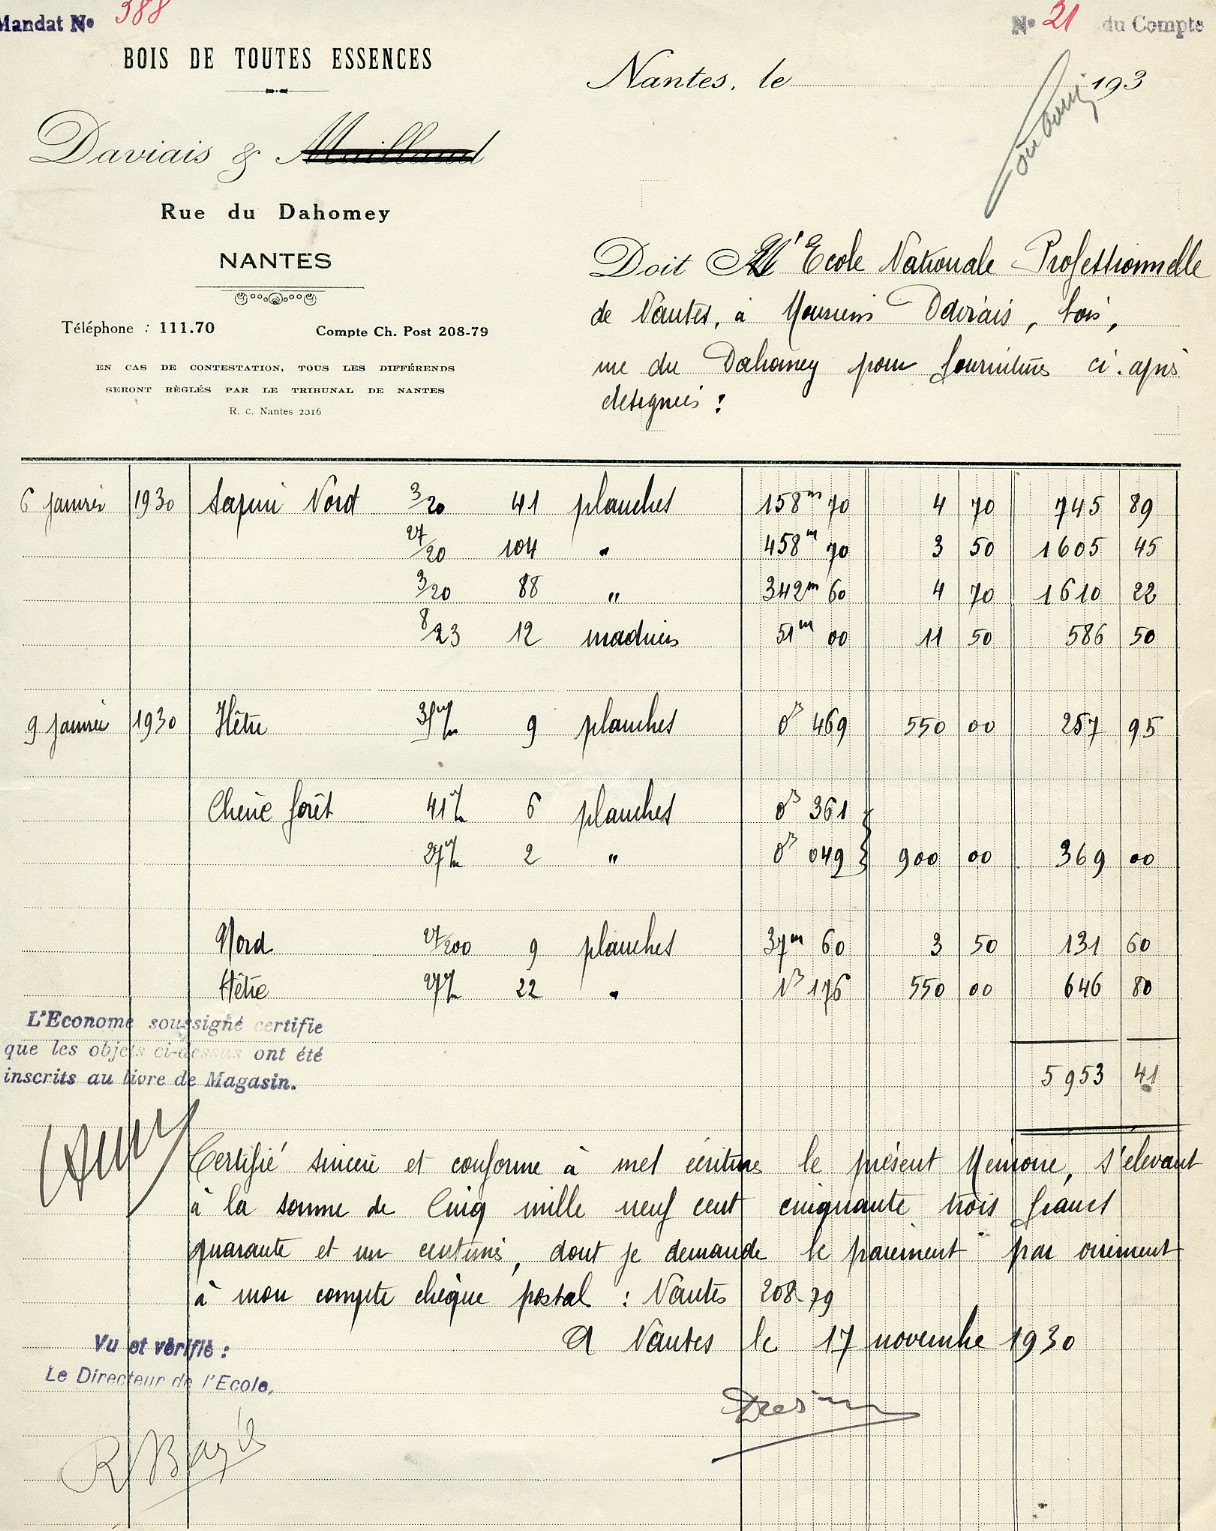 Mandat No 388
No 21 du Compte
BOIS DE TOUTES ESSENCES
Nantes, le 193
Daviais & Maillard
Rue du Dahomey
NANTES
Téléphone : 111.70 Compte Ch. Post 208-79
EN CAS DE CONTESTATION, TOUS LES DIFFÉRENDS
SERONT RÈGLÉS PAR LE TRIBUNAL DE NANTES
R. C. Nantes 2016
Doit l'Ecole Nationale Professionnelle
de Nantes, à Daviais, bois,
rue du Dahomey pour fournitures ci-après
désignées :
6 janvier 1930 Sapin Nord 3/20 41 planches 158m 70 4 70 745 89
27/20 104 " 458m 70 3 50 1605 45
3/20 88 " 342m 60 4 70 1610 22
8/23 12 madriers 51m 00 11 50 586 50
9 janvier 1930 Hêtre 9 planches 0 3 469 550 00 257 95
Chêne forêt 41 m/m 6 planches 0 3 361
27 m/m 2 " 0 3 049 900 00 369 00
Nord 27/200 9 planches 37m 60 3 50 131 60
Hêtre 27 m/m 22 " 1 3 176 550 00 646 80
5953 41
L'Econome soussigné certifie
que les objets ci-dessus ont été
inscrits au livre de Magasin.
Certifié sincère et conforme à mes écritures le présent Mémoire, s'élevant
à la somme de Cinq mille neuf cent cinquante trois francs
quarante et un centimes, dont je demande le paiement par virement
à mon compte chèque postal : Nantes 208-79
A Nantes le 17 novembre 1930
Vu et vérifié :
Le Directeur de l'Ecole,